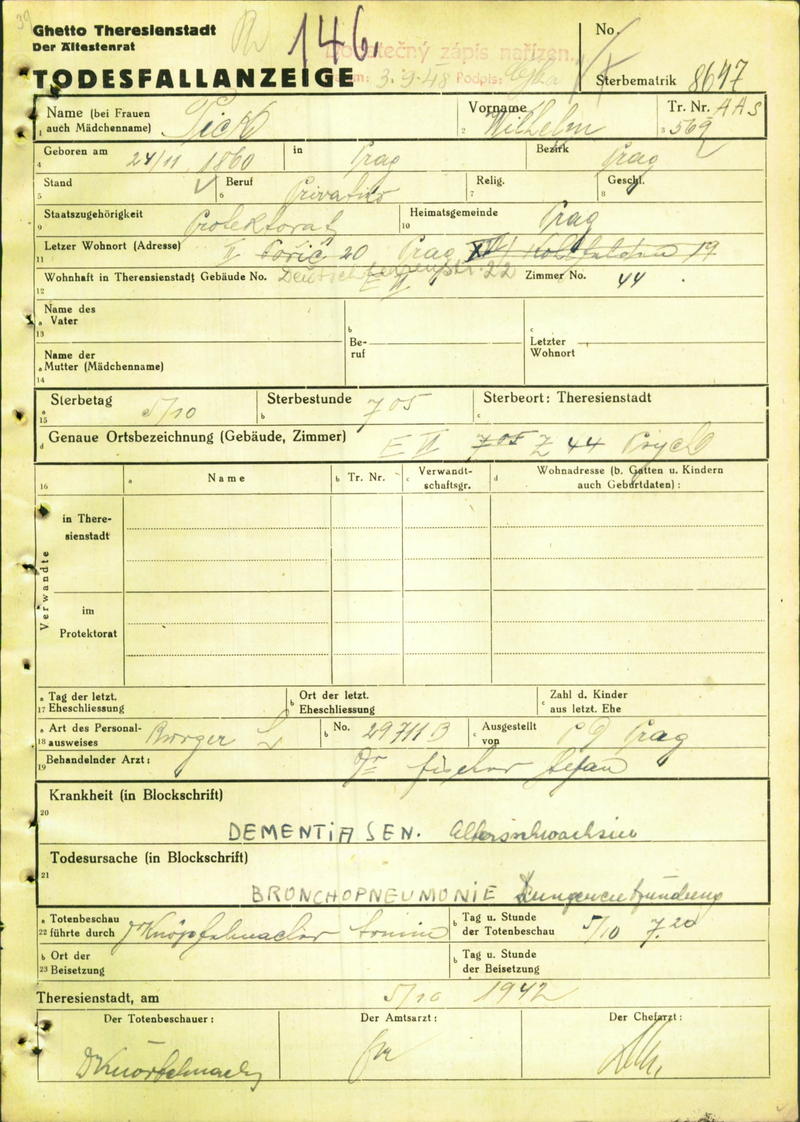 39
Ghetto Theresienstadt
Der Ältestenrat
146.
Dodatečný zápis nařízen.
3.9.48 Podpis:
No.
TODESFALLANZEIGE
Sterbematrik 8647
Name (bei Frauen auch Mädchenname) Pick
Vorname Wilhelm
Tr. Nr. AAs 569
Geboren am 24/11 1860 in Prag Bezirk Prag
Stand Beruf Relig. Geschl.
Staatszugehörigkeit Protektorat Heimatsgemeinde Prag
Letzer Wohnort (Adresse) II Poříč 20 Prag 19
Wohnhaft in Therensienstadt Gebäude No. E II 22 Zimmer No. 44
Name des Vater
Beruf
Letzter Wohnort
Name der Mutter (Mädchenname)
Sterbetag 5/10 Sterbestunde 7 05 Sterbeort: Theresienstadt
Genaue Ortsbezeichnung (Gebäude, Zimmer) E II 7 05 Z 44 Psych
Name Tr. Nr. Verwandtschaftsgr. Wohnadresse (b. Gatten u. Kindern auch Geburtdaten):
Verwandte
in Theresienstadt
im Protektorat
Tag der letzt. Eheschliessung
Ort der letzt. Eheschliessung
Zahl d. Kinder aus letzt. Ehe
Art des Personalausweises Bürger L No. 29711 B Ausgestellt von P D Prag
Behandelnder Arzt: Dr Fischer Stefan
Krankheit (in Blockschrift)
DEMENTIA SEN. Altersschwachsinn
Todesursache (in Blockschrift)
BRONCHOPNEUMONIE Lungenentzündung
Totenbeschau führte durch Knöpfelmacher Armin Tag u. Stunde der Totenbeschau 5/10 7.20
Ort der Beisetzung
Tag u. Stunde der Beisetzung
Theresienstadt, am 5/10 1942
Der Totenbeschauer: Der Amtsarzt: Der Chefarzt: